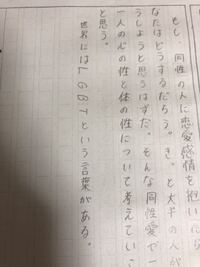 もし、同性の人に恋愛感情を抱いたら
なたはどうするだろう。き、と大半の人が
うしようと思うはずだ。そんな同性愛や一
人一人の心の性と体の性について考えていこ
と思う。
世界にはLGBTという言葉がある。